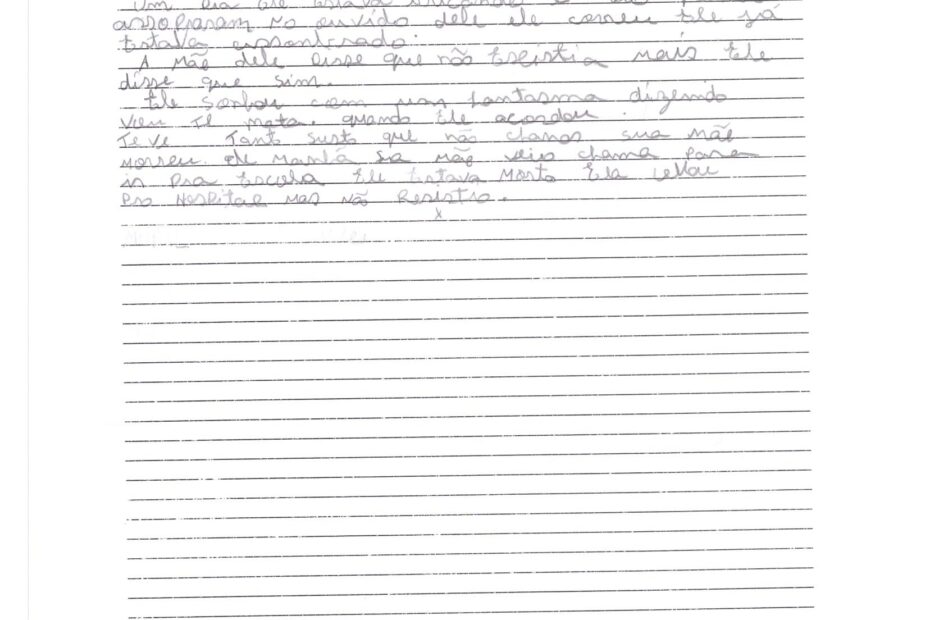 Um dia ele estava brincando
assopraram no ouvido dele ele correu Ele já
Estava assombrado.
A mãe dele disse que não Existia mais Ele
disse que sim.
Ele sonhou com um fantasma dizendo
vem Te mata. quando Ele acordou.
Teve Tanto susto que não chamou sua mãe
morreu. de manhã sa mãe veio chama para
ir Pra Escola Ele Estava Morto Ela levou
Pro Hospital mas não Resistio.
x